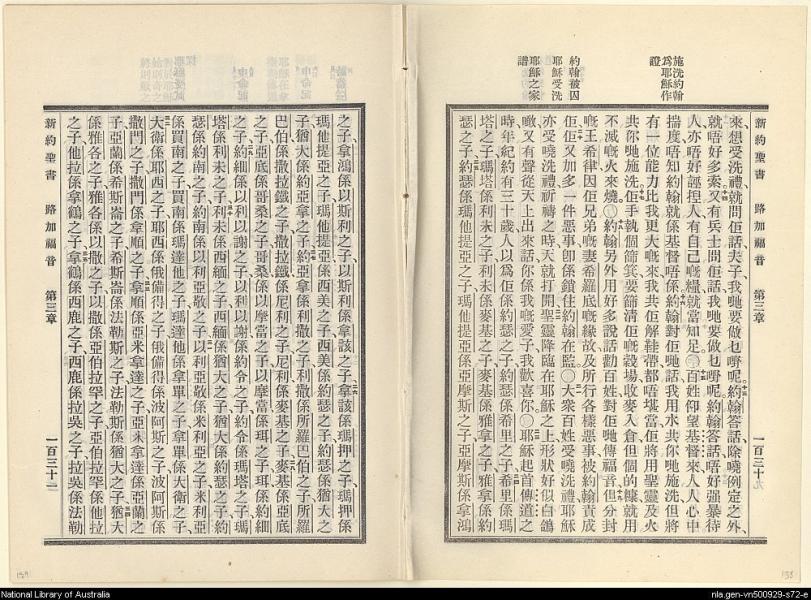 新約聖書 路加福音 第三章 一百三十
施洗約翰
爲耶穌作
證
約翰被囚
耶穌受洗
耶穌之家
譜
來想受洗禮就問佢話夫子我哋要做乜嘢呢約翰答話除嘵例定之外
就唔好多索又有兵士問佢話我哋要做乜嘢呢約翰答話唔好强暴待
人亦唔好誣捏人有自己嘅糧就當知足〇百姓仰望基督來人人心中
揣度唔知約翰就係基督唔係約翰對佢哋話我用水共你哋施洗但將
有一位能力比我更大嘅來我共佢解鞋帶都唔堪當佢將用聖靈及火
共你哋施洗佢手執個篩箕要篩清佢嘅穀場收麥入倉但個的糠就用
不滅嘅火來燒〇約翰另外用好多說話勸百姓對佢哋傳福音但分封
嘅王希律因佢兄弟嘅妻希羅底嘅緣故及所行各樣惡事被約翰責成
佢佢又加多一件惡事卽係鎖住約翰在監〇大衆百姓受嘵洗禮耶穌
亦受嘵洗禮祈禱之時天就打開聖靈降臨在耶穌之上形狀好似白鴿
嘅又有聲從天上出來話你係我嘅愛子我歡喜你〇耶穌起首傳道之
時年紀約有三十歲人以爲佢係約瑟之子約瑟係希里之子希里係瑪
塔之子瑪塔係利未之子利未係麥基之子麥基係雅拿之子雅拿係約
瑟之子約瑟係瑪他提亞之子瑪他提亞係亞摩斯之子亞摩斯係拿鴻
之子拿鴻係以斯利之子以斯利係拿該之子拿該係瑪押之子瑪押係
瑪他提亞之子瑪他提亞係西美之子西美係約瑟之子約瑟係猶大之
子猶大係約亞拿之子約亞拿係利撒之子利撒係所羅巴伯之子所羅
巴伯係撒拉鐵之子撒拉鐵係尼利之子尼利係麥基之子麥基係亞底
之子亞底係哥桑之子哥桑係以摩當之子以摩當係珥之子珥係約細
之子約細係以利以謝之子以利以謝係約令之子約令係瑪塔之子瑪
塔係利未之子利未係西緬之子西緬係猶大之子猶大係約瑟之子約
瑟係約南之子約南係以利亞敬之子以利亞敬係米利亞之子米利亞
係買南之子買南係瑪達他之子瑪達他係拿單之子拿單係大衛之子
大衛係耶西之子耶西係俄備得之子俄備得係波阿斯之子波阿斯係
撒門之子撒門係拿順之子拿順係亞米拿達之子亞米拿達係亞蘭之
子亞蘭係希斯崙之子希斯崙係法勒斯之子法勒斯係猶大之子猶大
係雅各之子雅各係以撒之子以撒係亞伯拉罕之子亞伯拉罕係他拉
之子他拉係拿鶴之子拿鶴係西鹿之子西鹿係拉吳之子拉吳係法勒
新約聖書 路加福音 第三章 一百三十二
National Library of Australia
nla.gen-vn500929-s72-e